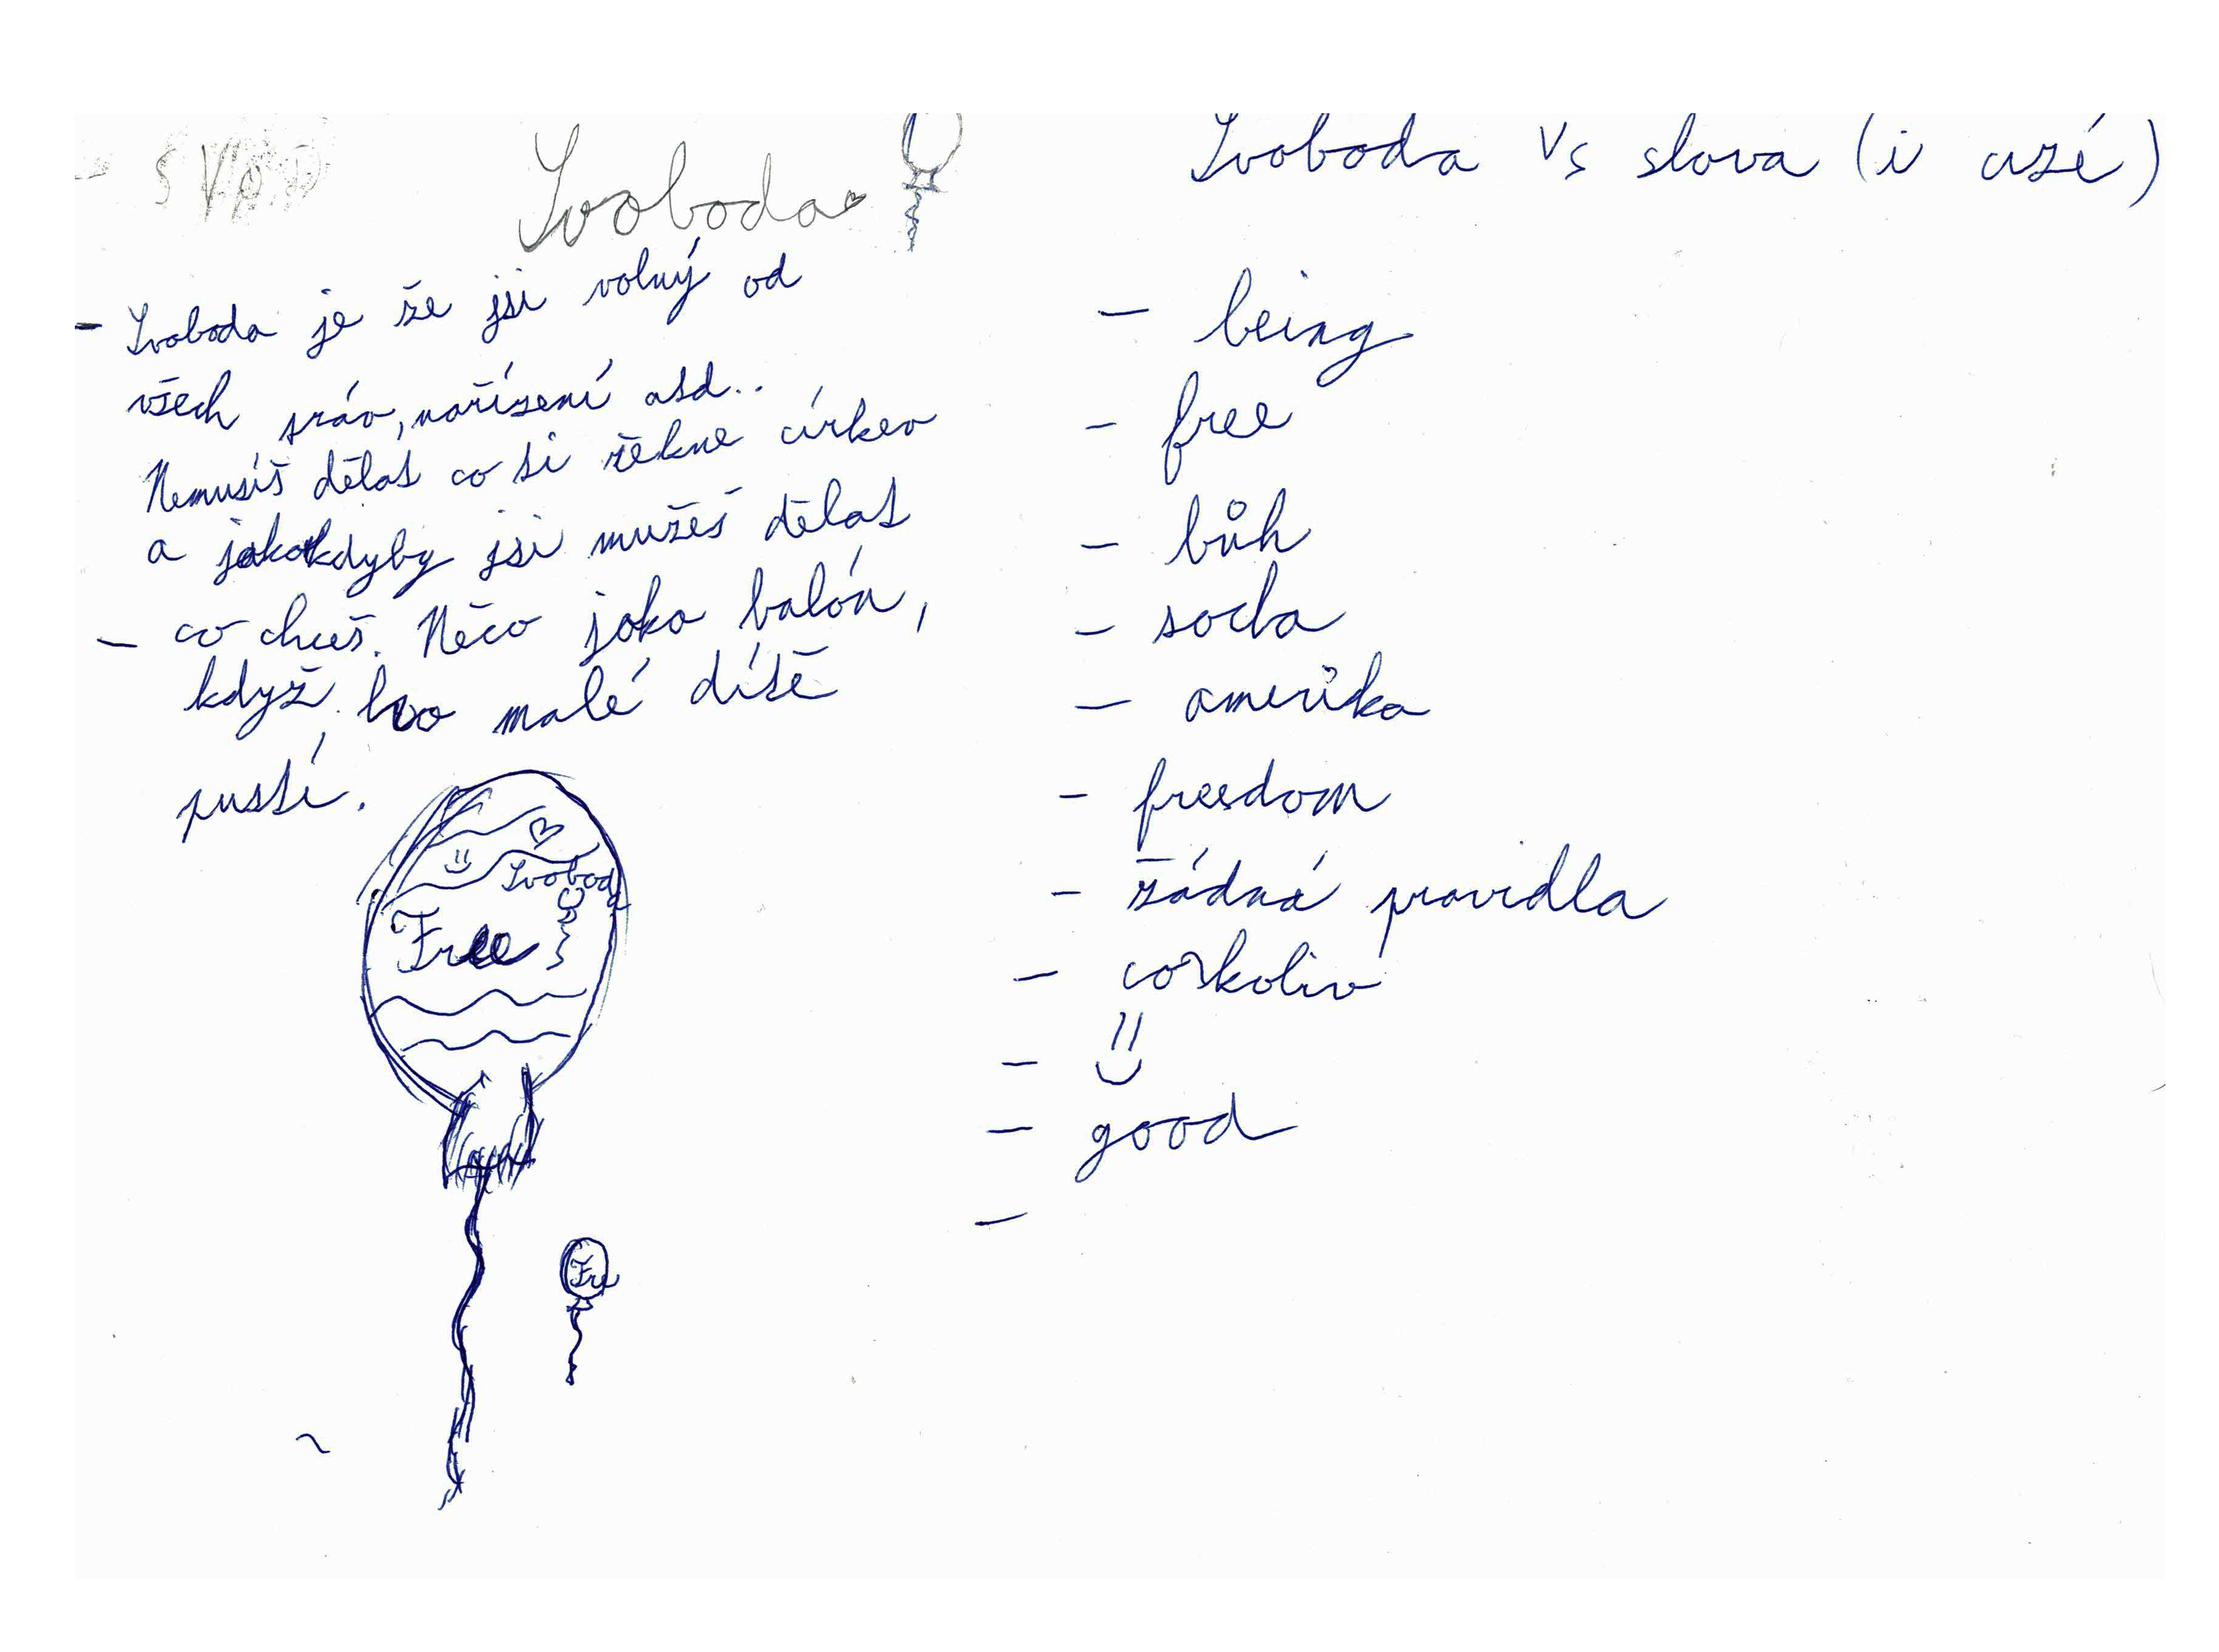 Svoboda
- Svoboda je že jsi volný od
všech zráv, nařízení atd..
Nemusíš dělat co ti řekne církev
a jakokdyby jsi mužeš dělat
- co chceš. Něco jako balón,
když ho malé dítě
pustí.
Svoboda
Free
Fre
Svoboda Vs slova (i cizé)
- being
- free
- bůh
- socha
- amerika
- freedom
- žádná pravidla
- cokoliv
- good
-